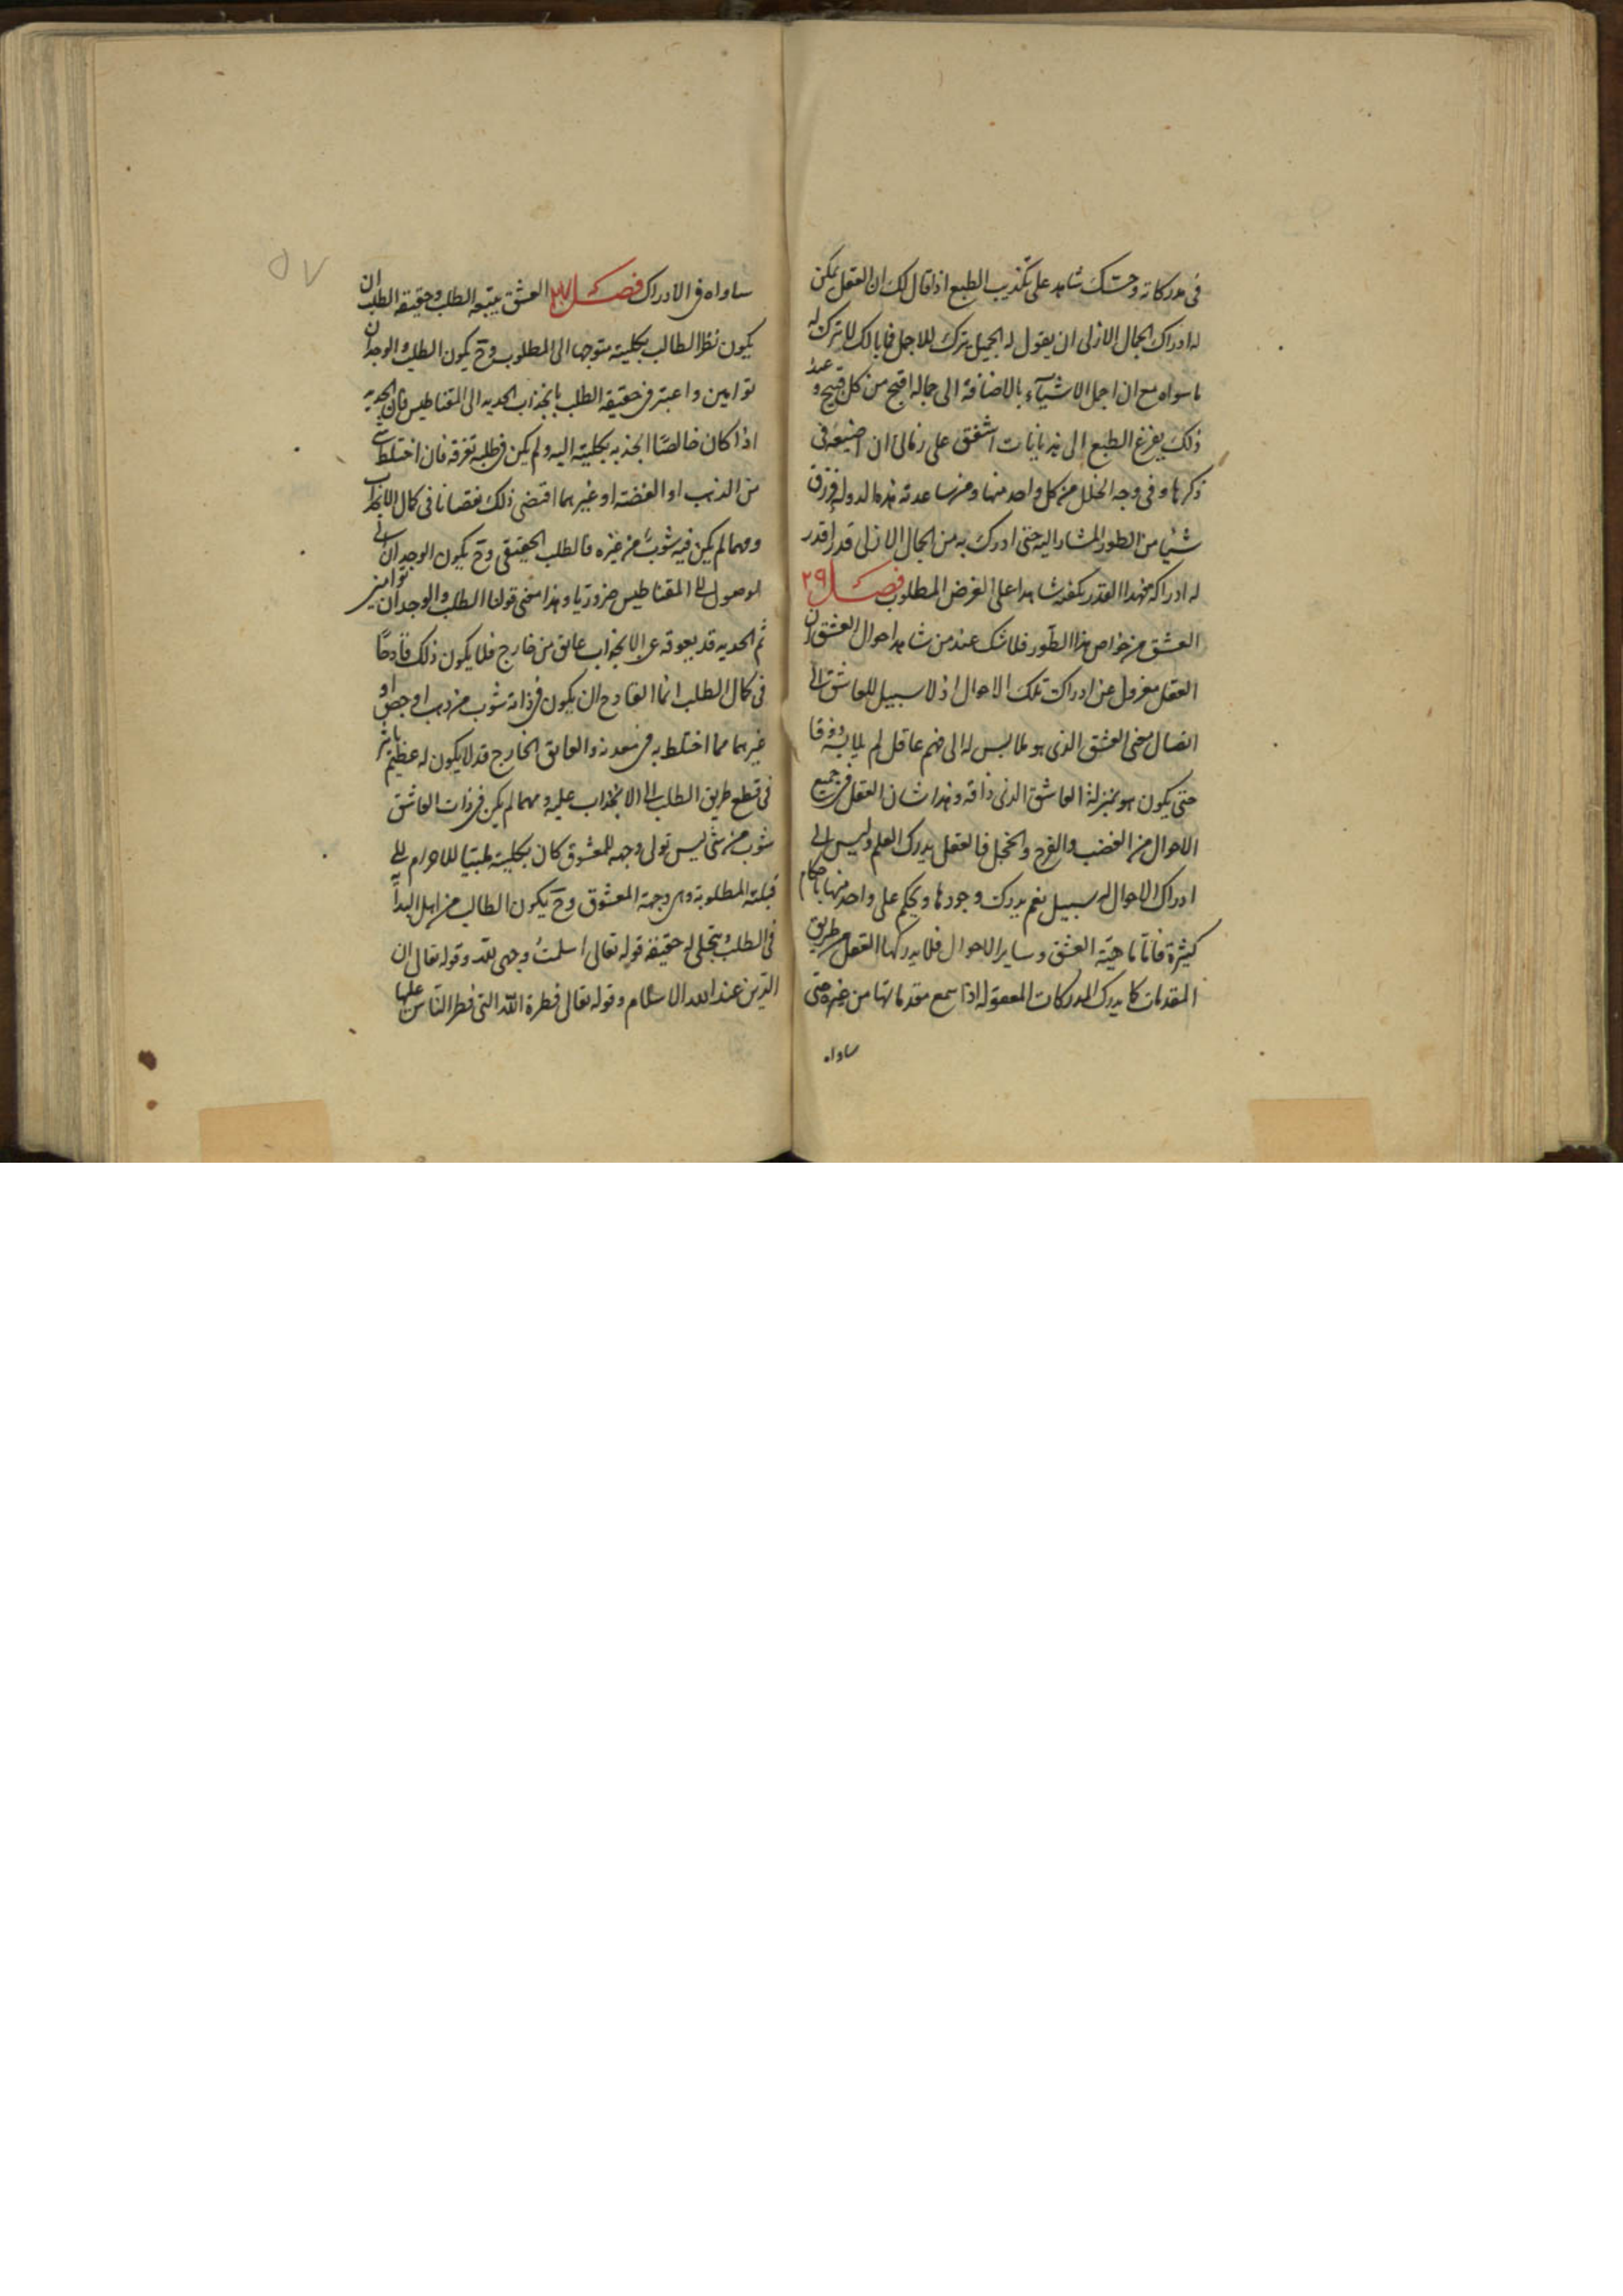 فى مدركاته وحسّك شاهد على تكذيب الطبع اذا قال لك ان العقل يمكن
له ادراك الجمال الازلى ان يقول له الجميل يترك للاجمل فما بالك لا تترك له
ما سواه مع ان اجمل الاشيآء بالاضافة الى جماله اقبح من كل قبيح و عند
ذلك يفزغ الطبع الى هذيانات اشفق على زمانى ان اضيّعه فى
ذكرها و فى وجه الخلل من كل واحد منها و من ساعدته هذه الدولة فرزق
شيئا من الطور المشار اليه حتى ادرك به من الجمال الازلى قدرا قدر
له ادراكه فهذا القدر يكفيه شاهدا على الغرض المطلوب فصل ٢٩
العشق من خواص هذا الطّور فلا شك عند من شاهد احوال العشق ان
العقل معزول عن ادراك تلك الاحوال اذ لا سبيل للعاشق الى
ايصال معنى العشق الذى هو ملابس له الى فهم عاقل لم يلابسه ذوقا
حتى يكون هو بمنزلة العاشق الذى ذاقه و هذا شان العقل فى جميع
الاحوال من الغضب والفرح والخجل فالعقل يدرك العلم وليس الى
ادراك الاحوال له سبيل نعم يدرك وجودها ويحكم على واحد منها باحكام
كثيرة فامّا ماهيّة العشق و ساير الاحوال فلا يدركها العقل من طريق
المقدمات كما يدرك المدركات المعقولة اذا سمع مقدماتها من غيره حتى
ساواه
٥٧
ساواه فى الادراك فصل العشق يتبعه الطلب وحقيقة الطلب ان
يكون نظر الطالب بكليته متوجها الى المطلوب وح يكون الطلب والوجدان
توامين واعتبر فى حقيقة الطلب بانجذاب الحديد الى المقناطيس فان الحديد
اذا كان خالصًا انجذب بكليته اليه ولم يكن فى طلبه تفرقة فان اختلط بشئ
من الذهب او الفضة او غيرهما اقتضى ذلك نقصانا فى كمال الانجذاب
ومهما لم يكن فيه شوبٌ من غيره فالطلب الحقيقى وح يكون الوجدان اى
الوصول الى المقناطيس ضروريا وهذا معنى قولنا الطلب والوجدان توامين
ثم الحديد قد يعوقه عن الانجذاب عايق من خارج فلا يكون ذلك قادحًا
فى كمال الطلب انما القادح ان يكون فى ذاته شوب من ذهب او جص او
غيرهما مما اختلط به فى معدنه والعايق الخارج قد لا يكون له عظيم تاثير
فى قطع طريق الطلب الى الانجذاب عليه ومهما لم يكن فى ذات العاشق
شوب من شئ ليس تولى وجهه للمعشوق كان بكليته للاحرام الى
قبلته المطلوبة وهى وجهة المعشوق وح يكون الطالب من اهل
فى الطلب ويتجلى له حقيقة قوله تعالى اسلمتُ وجهى لله وقوله تعالى ان
الدّين عند الله الاسلام وقوله تعالى فطرة الله التى فطر النّاس عليها